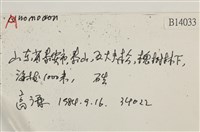 Anomodon
B14033
山东省泰安市泰山,五大夫松,
海拔1000米, 石
高谦 1984.9.16. 34022